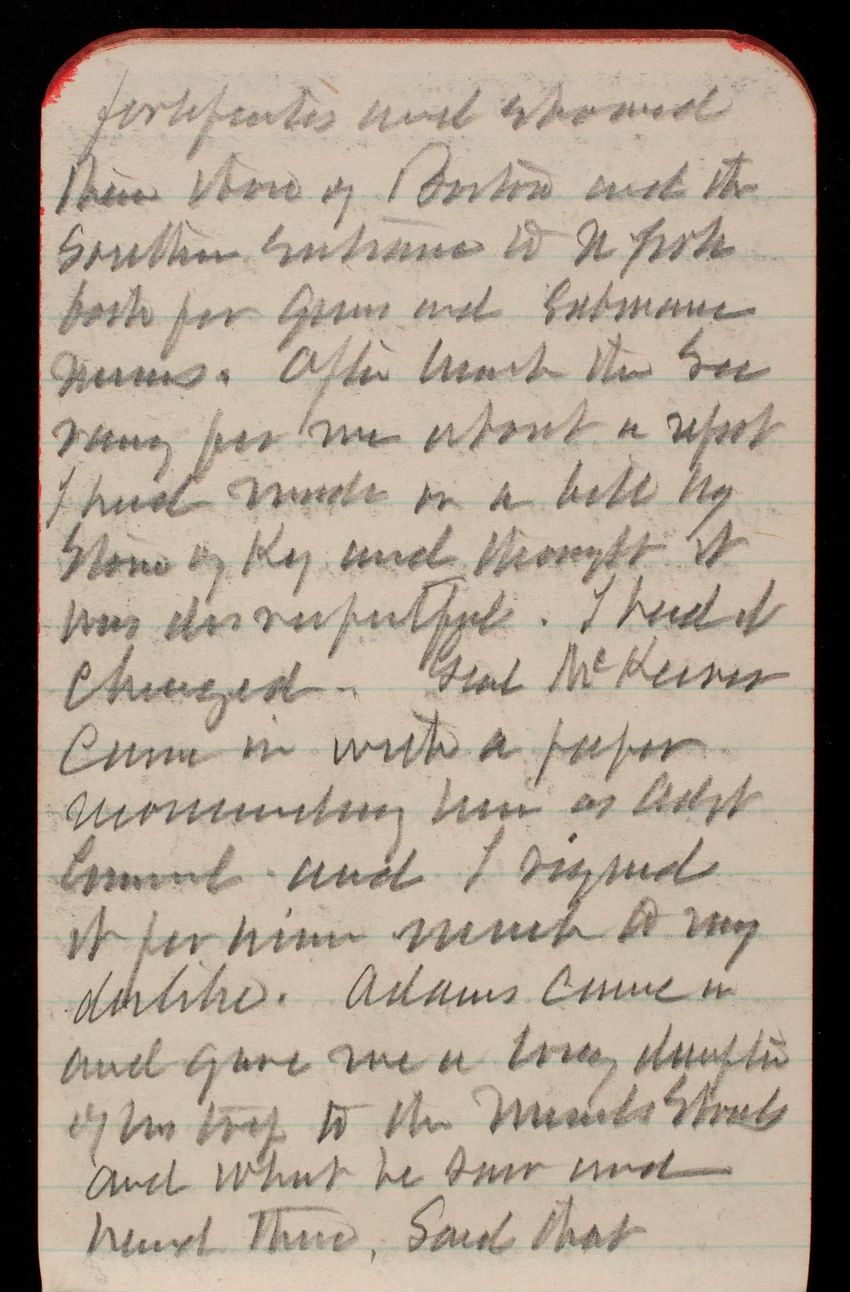 fortificatis and showed
them those of Boston and the
Southern entrance to N York
both for Guns and Submarine
mines. After lunch the Sec
rang for me about a report
I had made on a bill by
Stone of Ky and thought it
was disrespectful. I had it
changed. Genl McKeever
Came in with a paper
recommending him as Adjt
General and I signed
it for him much to my
dislike. Adams came in
and gave me a long
of his trip to the
and what he saw and
heard there, Said that